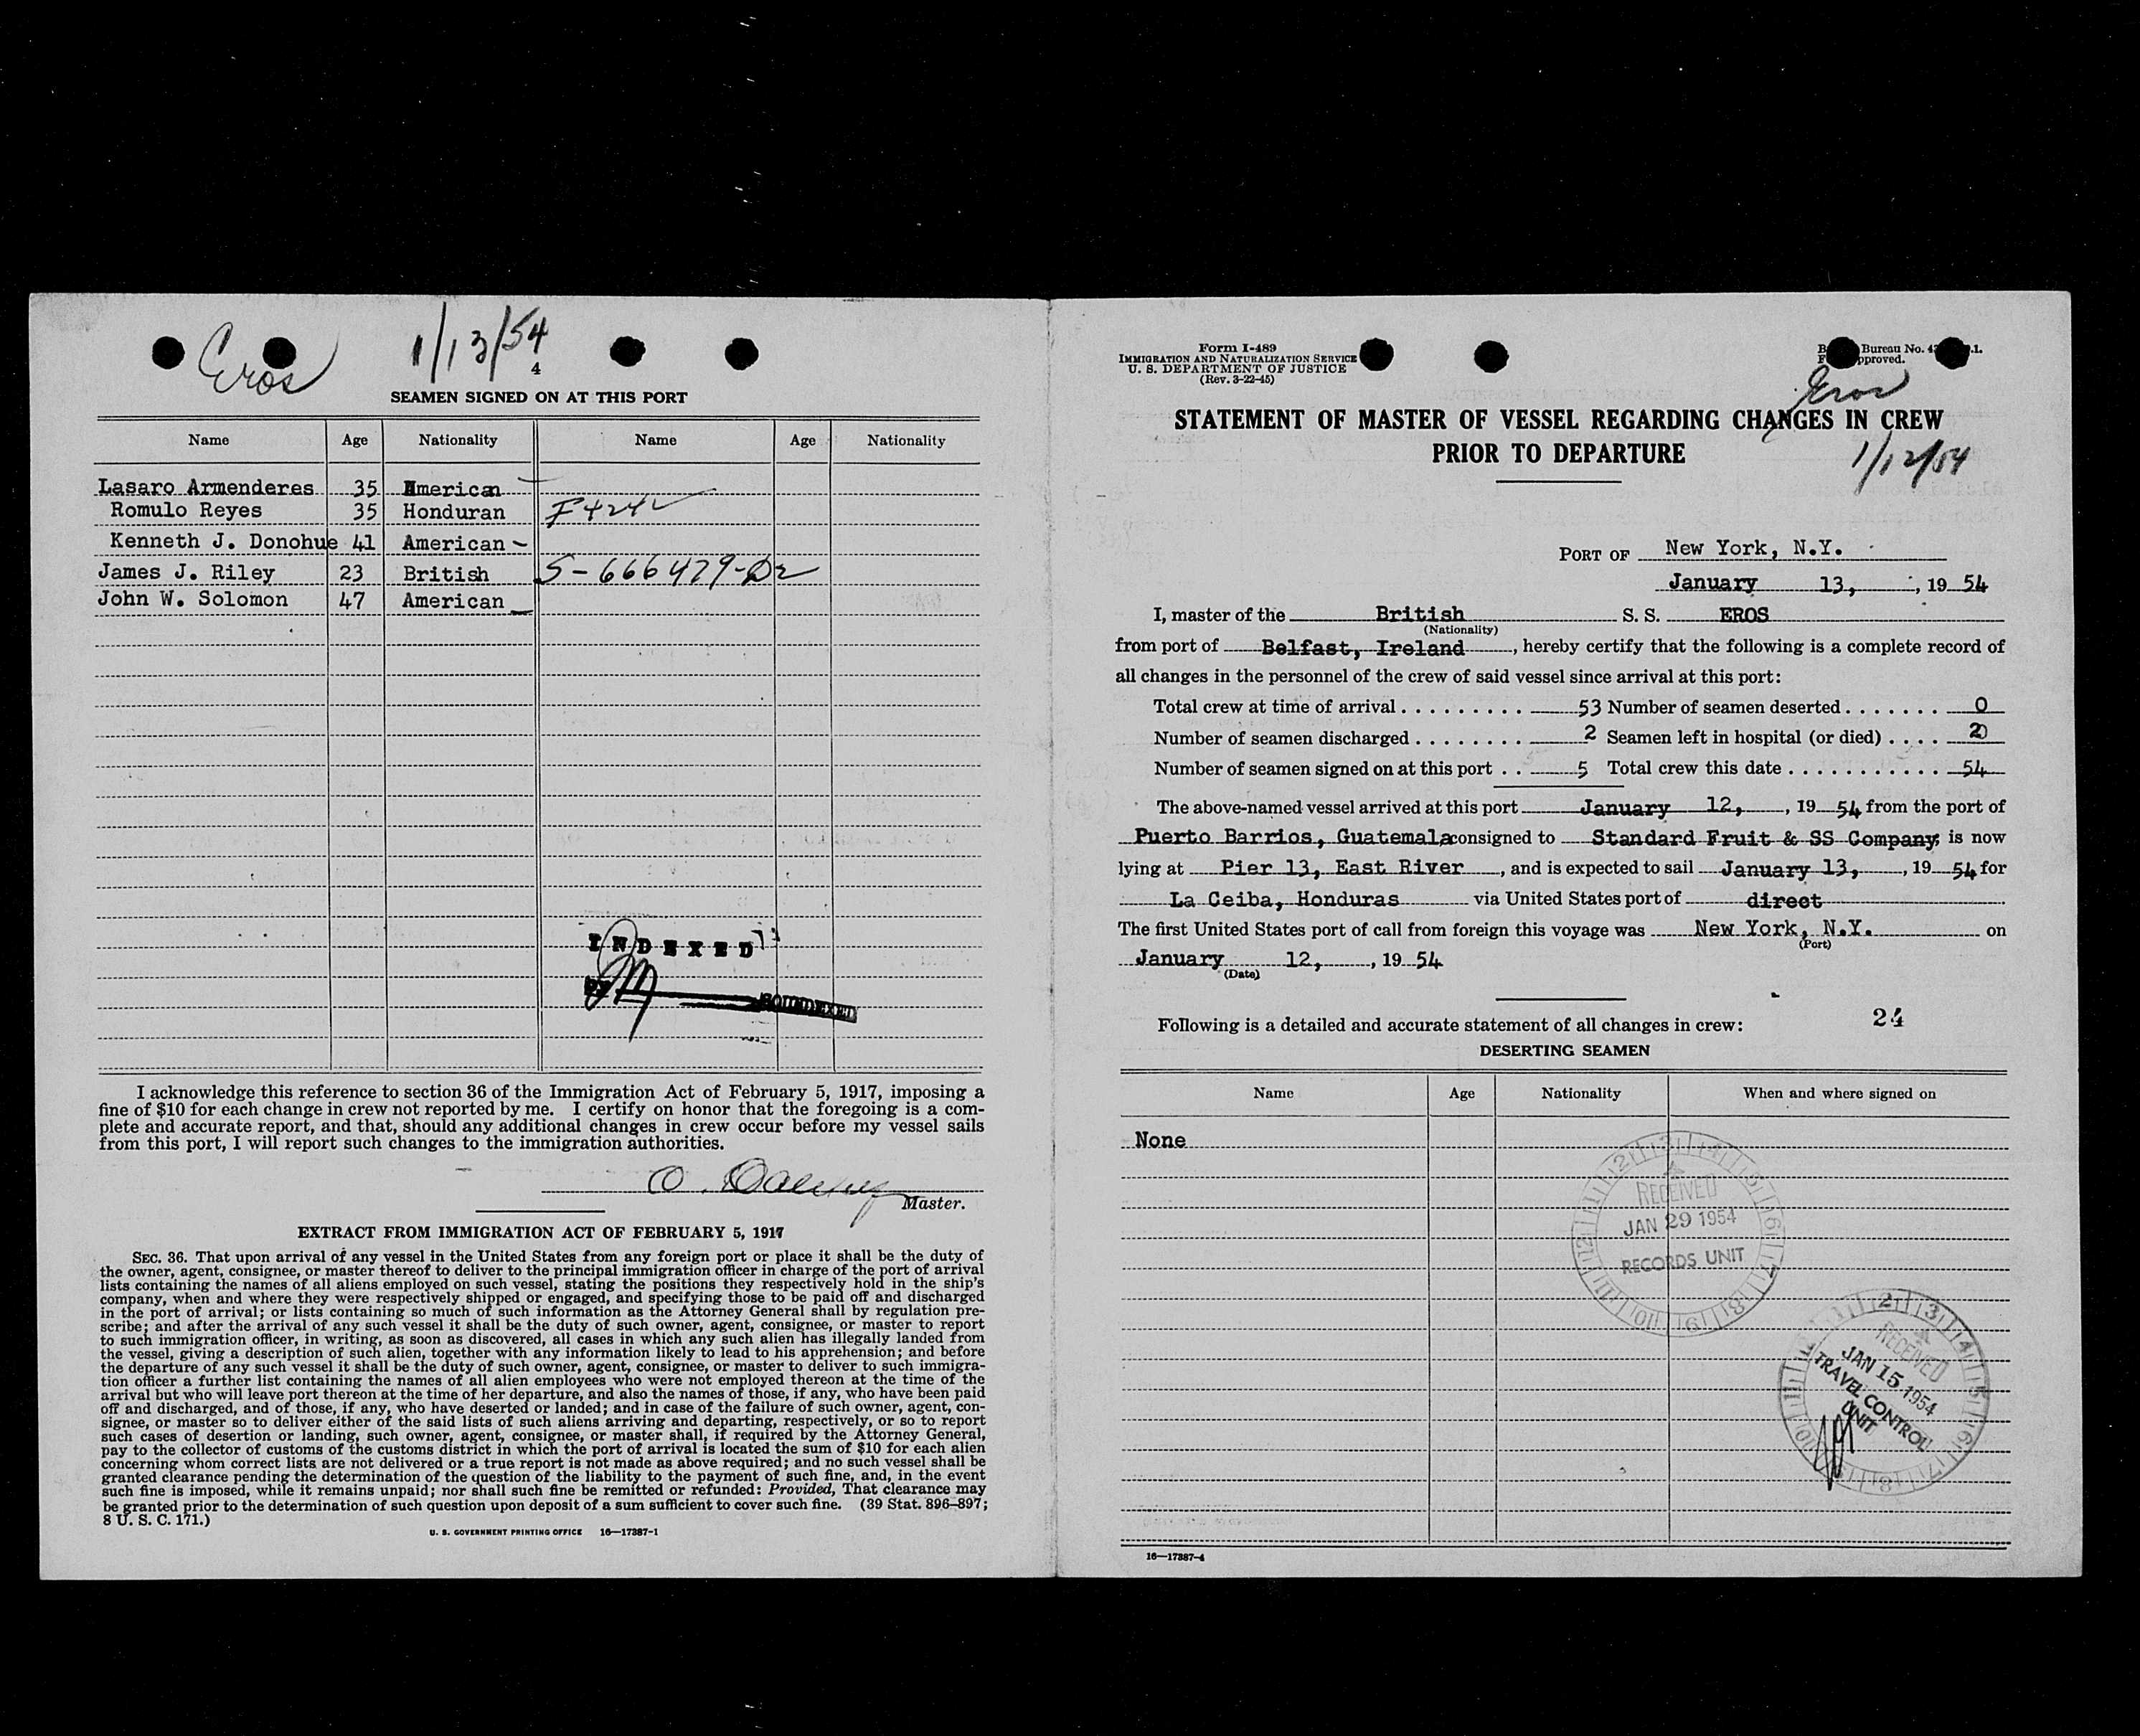 Eros
1/13/54
4
SEAMEN SIGNED ON AT THIS PORT
Name Age Nationality Name Age Nationality
Lasaro Armenderes 35 American
Romulo Reyes 35 Honduran F424
Kenneth J. Donohue 41 American
James J. Riley 23 British S-666479-D2
John W. Solomon 47 American
INDEXED
BY
SOUNDEXED
I acknowledge this reference to section 36 of the Immigration Act of February 5, 1917, imposing a
fine of $10 for each change in crew not reported by me. I certify on honor that the foregoing is a com-
plete and accurate report, and that, should any additional changes in crew occur before my vessel sails
from this port, I will report such changes to the immigration authorities.
O.
Master.
EXTRACT FROM IMMIGRATION ACT OF FEBRUARY 5, 1917
SEC. 36. That upon arrival of any vessel in the United States from any foreign port or place it shall be the duty of
the owner, agent, consignee, or master thereof to deliver to the principal immigration officer in charge of the port of arrival
lists containing the names of all aliens employed on such vessel, stating the positions they respectively hold in the ship's
company, when and where they were respectively shipped or engaged, and specifying those to be paid off and discharged
in the port of arrival; or lists containing so much of such information as the Attorney General shall by regulation pre-
scribe; and after the arrival of any such vessel it shall be the duty of such owner, agent, consignee, or master to report
to such immigration officer, in writing, as soon as discovered, all cases in which any such alien has illegally landed from
the vessel, giving a description of such alien, together with any information likely to lead to his apprehension; and before
the departure of any such vessel it shall be the duty of such owner, agent, consignee, or master to deliver to such immigra-
tion officer a further list containing the names of all alien employees who were not employed thereon at the time of the
arrival but who will leave port thereon at the time of her departure, and also the names of those, if any, who have been paid
off and discharged, and of those, if any, who have deserted or landed; and in case of the failure of such owner, agent, con-
signee, or master so to deliver either of the said lists of such aliens arriving and departing, respectively, or so to report
such cases of desertion or landing, such owner, agent, consignee, or master shall, if required by the Attorney General,
pay to the collector of customs of the customs district in which the port of arrival is located the sum of $10 for each alien
concerning whom correct lists are not delivered or a true report is not made as above required; and no such vessel shall be
granted clearance pending the determination of the question of the liability to the payment of such fine, and, in the event
such fine is imposed, while it remains unpaid; nor shall such fine be remitted or refunded: Provided, That clearance may
be granted prior to the determination of such question upon deposit of a sum sufficient to cover such fine. (39 Stat. 896–897;
8 U. S. C. 171.)
U. S. GOVERNMENT PRINTING OFFICE 16—17387-1
Form I-489
IMMIGRATION AND NATURALIZATION SERVICE
U. S. DEPARTMENT OF JUSTICE
(Rev. 3-22-45)
Bureau No. 4
pproved.
Eros
STATEMENT OF MASTER OF VESSEL REGARDING CHANGES IN CREW
PRIOR TO DEPARTURE
1/12/54
PORT OF New York, N.Y.
January 13, , 19 54
I, master of the British S. S. EROS
(Nationality)
from port of Belfast, Ireland , hereby certify that the following is a complete record of
all changes in the personnel of the crew of said vessel since arrival at this port:
Total crew at time of arrival . . . . . . . . . 53 Number of seamen deserted . . . . . . . 0
Number of seamen discharged . . . . . . . . 2 Seamen left in hospital (or died) . . . . 2
Number of seamen signed on at this port . . 5 Total crew this date . . . . . . . . . . . 54
The above-named vessel arrived at this port January 12, , 19 54 from the port of
Puerto Barrios, Guatemala consigned to Standard Fruit & SS Company; is now
lying at Pier 13, East River , and is expected to sail January 13, , 19 54 for
La Ceiba, Honduras via United States port of direct .
The first United States port of call from foreign this voyage was New York, N.Y. on
(Port)
January 12, , 19 54
(Date)
24
Following is a detailed and accurate statement of all changes in crew:
DESERTING SEAMEN
Name Age Nationality When and where signed on
None
RECEIVED
JAN 29 1954
RECORDS UNIT
RECEIVED
JAN 15 1954
TRAVEL CONTROL
UNIT
16—17387-4